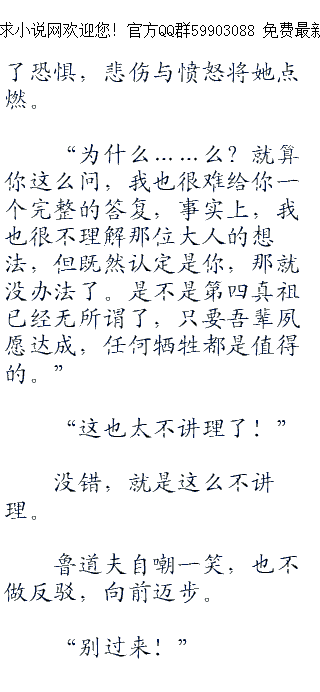 求小说网欢迎您！官方QQ群59903088 免费最新
了恐惧，悲伤与愤怒将她点
燃。
“为什么……么？就算
你这么问，我也很难给你一
个完整的答复，事实上，我
也很不理解那位大人的想
法，但既然认定是你，那就
没办法了。是不是第四真祖
已经无所谓了，只要吾辈夙
愿达成，任何牺牲都是值得
的。”
“这也太不讲理了！”
没错，就是这么不讲
理。
鲁道夫自嘲一笑，也不
做反驳，向前迈步。
“别过来！”